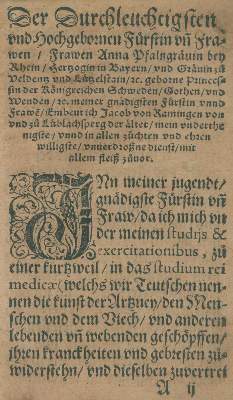 Der Durchleuchtigsten
vnd Hochgebornen Fürstin vñ Fra-
wen / Frawen Anna Pfalngräuin bey
Rhein / Hertzogin in Bayern / vnd Gräuin zů
Veldentz vnd Lützelstain / ꝛc. geborne Princes-
sin der Königreichen Schweden / Gothen / vnd
Wenden / ꝛc. meiner gnädigsten Fürstin vnnd
Frawẽ / Embeut ich Jacob von Ramingen von
vnd zů Lüblachsperg der älter / mein vnderthe
nigiste / vnnd in allen züchten vnd ehren
willigste / vnuerdroßne dienst / mit
allem fleiß zůuor.
INn meiner jugendt /
gnädigste Fürstin vñ
Fraw / da ich mich vn
der meinen studijs &
exercitationibus, zů
einer kurtzweil / in das studium rei
medicæ (welchs wir Teutschen nen-
nen die kunst der Artzney / den Men-
schen vnd dem Viech / vnd anderen
lebenden vñ webenden geschöpffen /
jhren kranckheiten vnd gebresten zů-
widerstehn / vnd dieselben zuuertrei
A ij